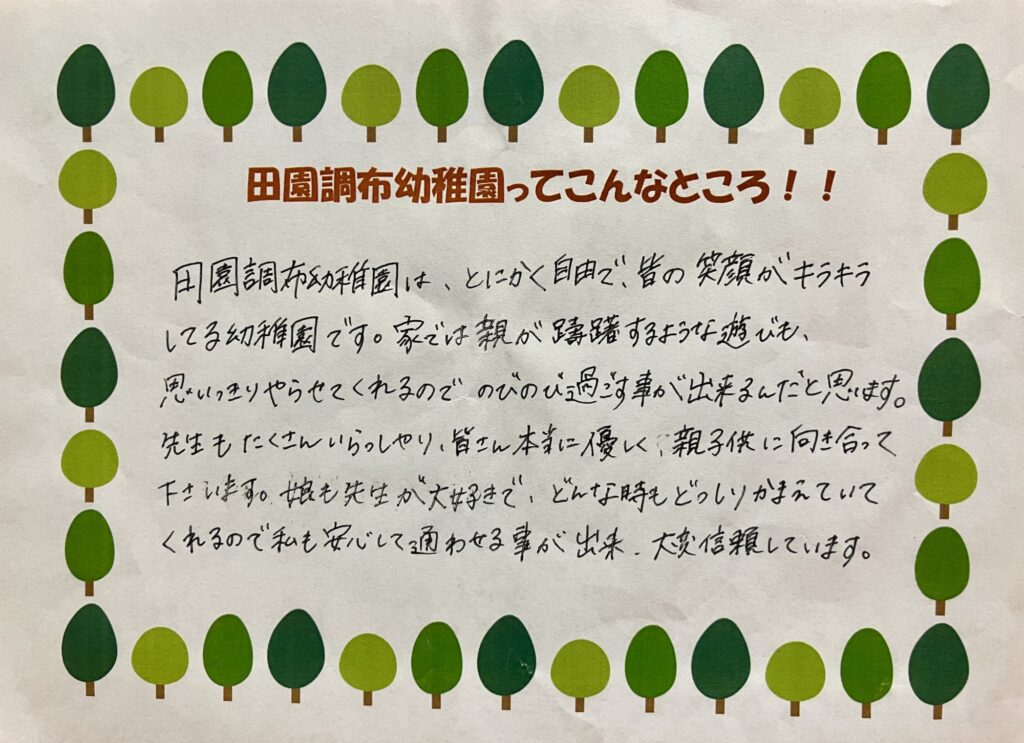 田園調布幼稚園ってこんなところ！！
田園調布幼稚園は、とにかく自由で、皆の笑顔がキラキラ
してる幼稚園です。家では親が躊躇するような遊びも、
思いっきりやらせてくれるのでのびのび過ごす事が出来るんだと思います。
先生もたくさんいらっしゃり、皆さん本当に優しく、親子供に向き合って
下さいます。娘も先生が大好きで、どんな時もどっしりかまえていて
くれるので私も安心して通わせる事が出来、大変信頼しています。